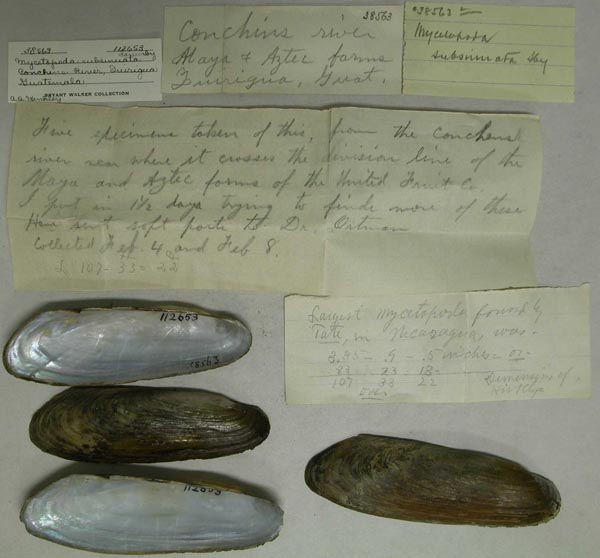 38563 112653
Mycetopoda subsinuata
Conchins River, Quirigua
Guatemala
BRYANT WALKER COLLECTION
38563
Conchins river
Maya & Aztec farms
Quirigua, Guat.
38563
Mycetopoda
subsinuata Sby
Five specimens taken of this, from the Conchins
river near where it crosses the division line of the
Maya and Aztec farms of the United Fruit Co.
I put in 1½ days trying to finde more of these
Have sent soft parts to Dr. Ortman
Collected Feb. 4, and Feb 8.
L 107- 33- 22
Largest Mycetopoda found by
Tate, in Nicaragua, was -
3.35 - .9 - .5 inches = or -
23 13 -
107 33 22
Dimensions of
over
112653
38563
112653